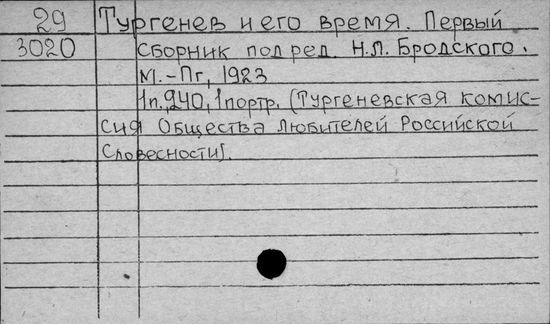 29 Тургенев и его время. Первый
3020 сборник под ред. Н.Л. Бродского.
М.-Пг, 1923
1п., 240, 1портр. (Тургеневская комис-
сия Общества Любителей Российской
Словесности).